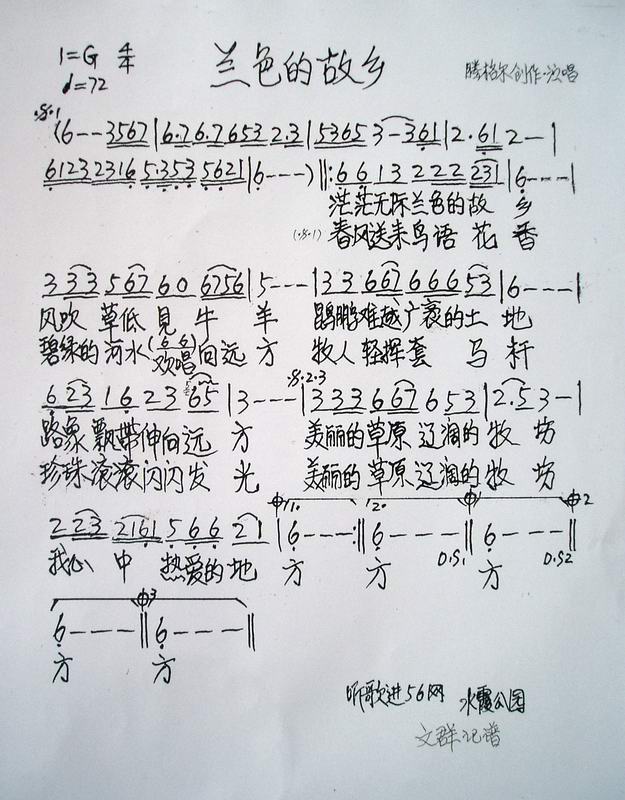 1=G 4/4 兰色的故乡 腾格尔创作·演唱
♩=72
·𝄋·1
(6 - - 3567 | 6·7 6·7 653 2·3 | 5365 3 - 361 | 2·61 2 - |
6123 2316 5·353 5621 | 6 - - - ) ‖: 6 6 1 3 2 2 2 231 | 6 - - - |
茫茫无际兰色的故 乡
(·𝄋·1) 春风送来鸟语 花 香
3 33 5 67 6 0 6756 | 5 - - - | 3 3 6 67 6 6 6 53 | 6 - - - |
风吹 草低 見 牛 羊 鹍鹏难越广袤的土 地
碧绿的河水(6 6 欢唱)向远 方 牧人轻挥套 马 杆
·𝄋·2·3
6 23 1 6 2 3 65 | 3 - - - | 3 3 3 6 67 6 53 | 2·53 - |
路象飘带伸向远 方 美丽的草原辽阔的牧 场
珍珠滚滚闪闪发 光 美丽的草原辽阔的牧 场
1. 2. 𝄌1 𝄌2
2 23 2161 5 6 6 21 | 6 - - - :‖ 6 - - - ‖ 6 - - - ‖
D.S1 D.S2
我心 中 热爱的地 方 方 方
𝄌3
6 - - - ‖ 6 - - - ‖
方 方
听歌进56网 水霞公园
文群记谱